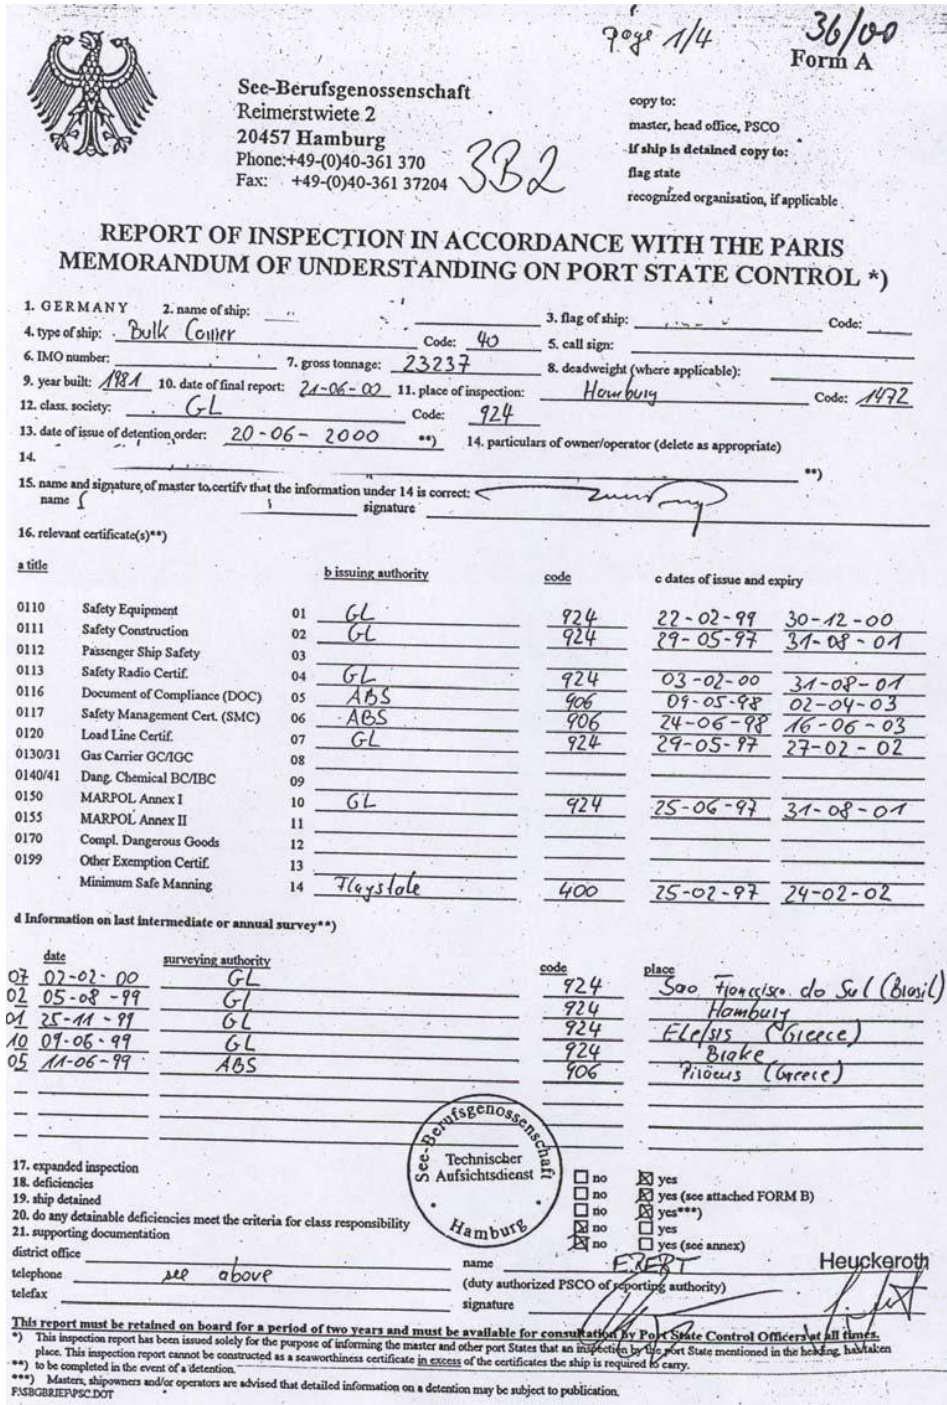 page 1/4
36/00
Form A
See-Berufsgenossenschaft
Reimerstwiete 2
20457 Hamburg
Phone:+49-(0)40-361 370
Fax: +49-(0)40-361 37204
3B2
copy to:
master, head office, PSCO
If ship is detained copy to:
flag state
recognized organisation, if applicable
REPORT OF INSPECTION IN ACCORDANCE WITH THE PARIS
MEMORANDUM OF UNDERSTANDING ON PORT STATE CONTROL *)
1. GERMANY 2. name of ship: 3. flag of ship: Code:
4. type of ship: Bulk Carrier Code: 40 5. call sign:
6. IMO number: 7. gross tonnage: 23237 8. deadweight (where applicable):
9. year built: 1981 10. date of final report: 21-06-00 11. place of inspection: Hamburg Code: 1472
12. class. society: GL Code: 924
13. date of issue of detention order: 20-06-2000 **) 14. particulars of owner/operator (delete as appropriate)
14. **)
15. name and signature of master to certify that the information under 14 is correct:
name signature
16. relevant certificate(s)**)
a title b issuing authority code c dates of issue and expiry
0110 Safety Equipment 01 GL 924 22-02-99 30-12-00
0111 Safety Construction 02 GL 924 29-05-97 31-08-01
0112 Passenger Ship Safety 03
0113 Safety Radio Certif. 04 GL 924 03-02-00 31-08-01
0116 Document of Compliance (DOC) 05 ABS 906 09-05-98 02-04-03
0117 Safety Management Cert. (SMC) 06 ABS 906 24-06-98 16-06-03
0120 Load Line Certif. 07 GL 924 29-05-97 27-02-02
0130/31 Gas Carrier GC/IGC 08
0140/41 Dang. Chemical BC/IBC 09
0150 MARPOL Annex I 10 GL 924 25-06-97 31-08-01
0155 MARPOL Annex II 11
0170 Compl. Dangerous Goods 12
0199 Other Exemption Certif. 13
Minimum Safe Manning 14 Flagstate 400 25-02-97 24-02-02
d Information on last intermediate or annual survey**)
date surveying authority code place
07 02-02-00 GL 924 Sao Francisco do Sul (Brasil)
02 05-08-99 GL 924 Hamburg
01 25-11-99 GL 924 Elefsis (Greece)
10 09-06-99 GL 924 Brake
05 11-06-99 ABS 906 Piräeus (Greece)
See-Berufsgenossenschaft
Technischer
Aufsichtsdienst
Hamburg
17. expanded inspection no yes
18. deficiencies no yes (see attached FORM B)
19. ship detained no yes***)
20. do any detainable deficiencies meet the criteria for class responsibility no yes
21. supporting documentation no yes (see annex)
district office name EBERT Heuckeroth
telephone see above (duty authorized PSCO of reporting authority)
telefax signature
This report must be retained on board for a period of two years and must be available for consultation by Port State Control Officers at all times.
*) This inspection report has been issued solely for the purpose of informing the master and other port States that an inspection by the port State mentioned in the heading, has taken
place. This inspection report cannot be constructed as a seaworthiness certificate in excess of the certificates the ship is required to carry.
**) to be completed in the event of a detention.
***) Masters, shipowners and/or operators are advised that detailed information on a detention may be subject to publication.
F:\SBGBRIEF\PSC.DOT